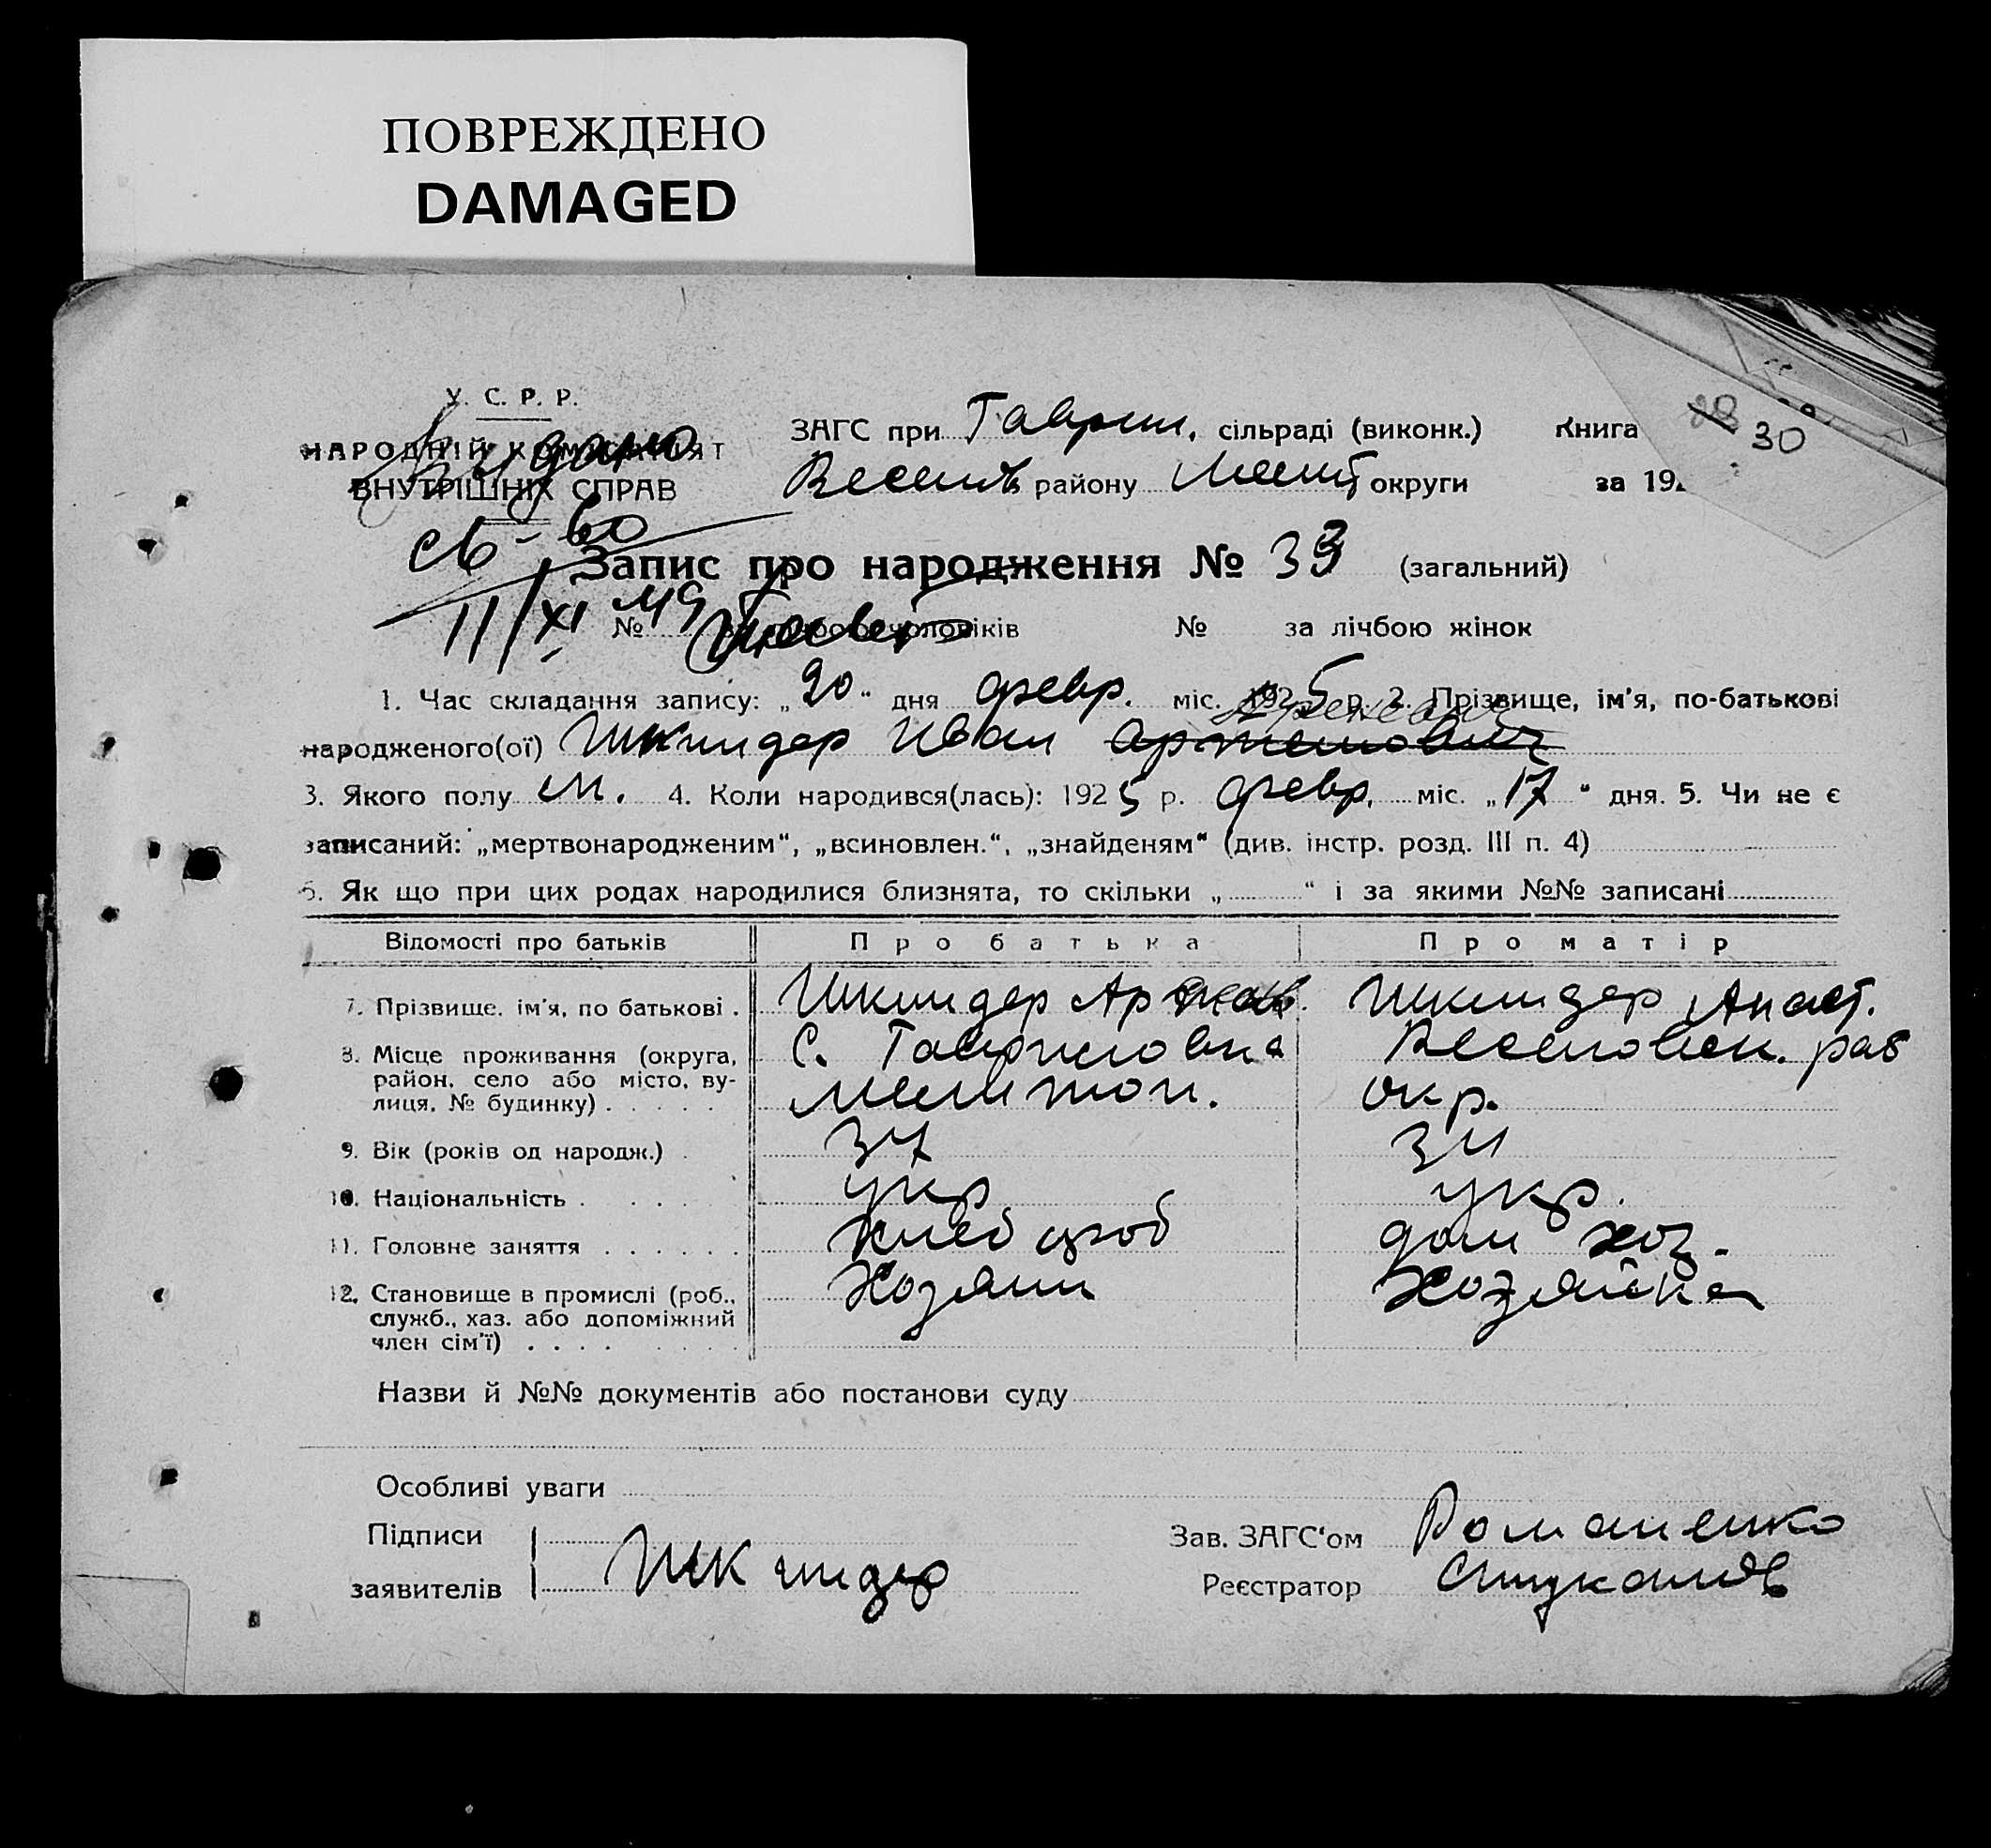 ПОВРЕЖДЕНО
DAMAGED
У. С. Р. Р.
НАРОДНІЙ КОМІСАРІЯТ
ВНУТРІШНІХ СПРАВ
Выдано
св-во
11/XI 49
ЗАГС при Гаврил. сільраді (виконк.) Книга
30
Веселов району Мелит округи за 192
Запис про народження № 33 (загальний)
№ за лічбою чоловіків № за лічбою жінок
1. Час складання запису: „20“ дня февр. міс. 1925 р. 2. Прізвище, ім'я, по-батькові
народженого(ої) Шкиндер Иван Артемович
3. Якого полу м. 4. Коли народився(лась): 1925 р. февр. міс. „17“ дня. 5. Чи не є
записаний: „мертвонародженим“, „всиновлен.“, „знайденям“ (див. інстр. розд. III п. 4)
6. Як що при цих родах народилися близнята, то скільки „ “ і за якими №№ записані
Відомості про батьків Про батька Про матір
7. Прізвище, ім'я, по батькові . Шкиндер Шкиндер Анаст.
8. Місце проживання (округа, район, село або місто, вулиця, № будинку) . . . . . с. Гавриловка Веселовск. раб
Мелитоп. окр.
9. Вік (років од народж.) . 37 34
10. Національність . . . . . укр укр.
11. Головне заняття . . . . . . хлебороб дом хоз.
12. Становище в промислі (роб., служб., хаз. або допоміжний член сім'ї) . . . . Хозяин Хозяйка
Назви й №№ документів або постанови суду
Особливі уваги
Підписи заявителів Шкиндер
Зав. ЗАГС'ом Романенко
Реєстратор